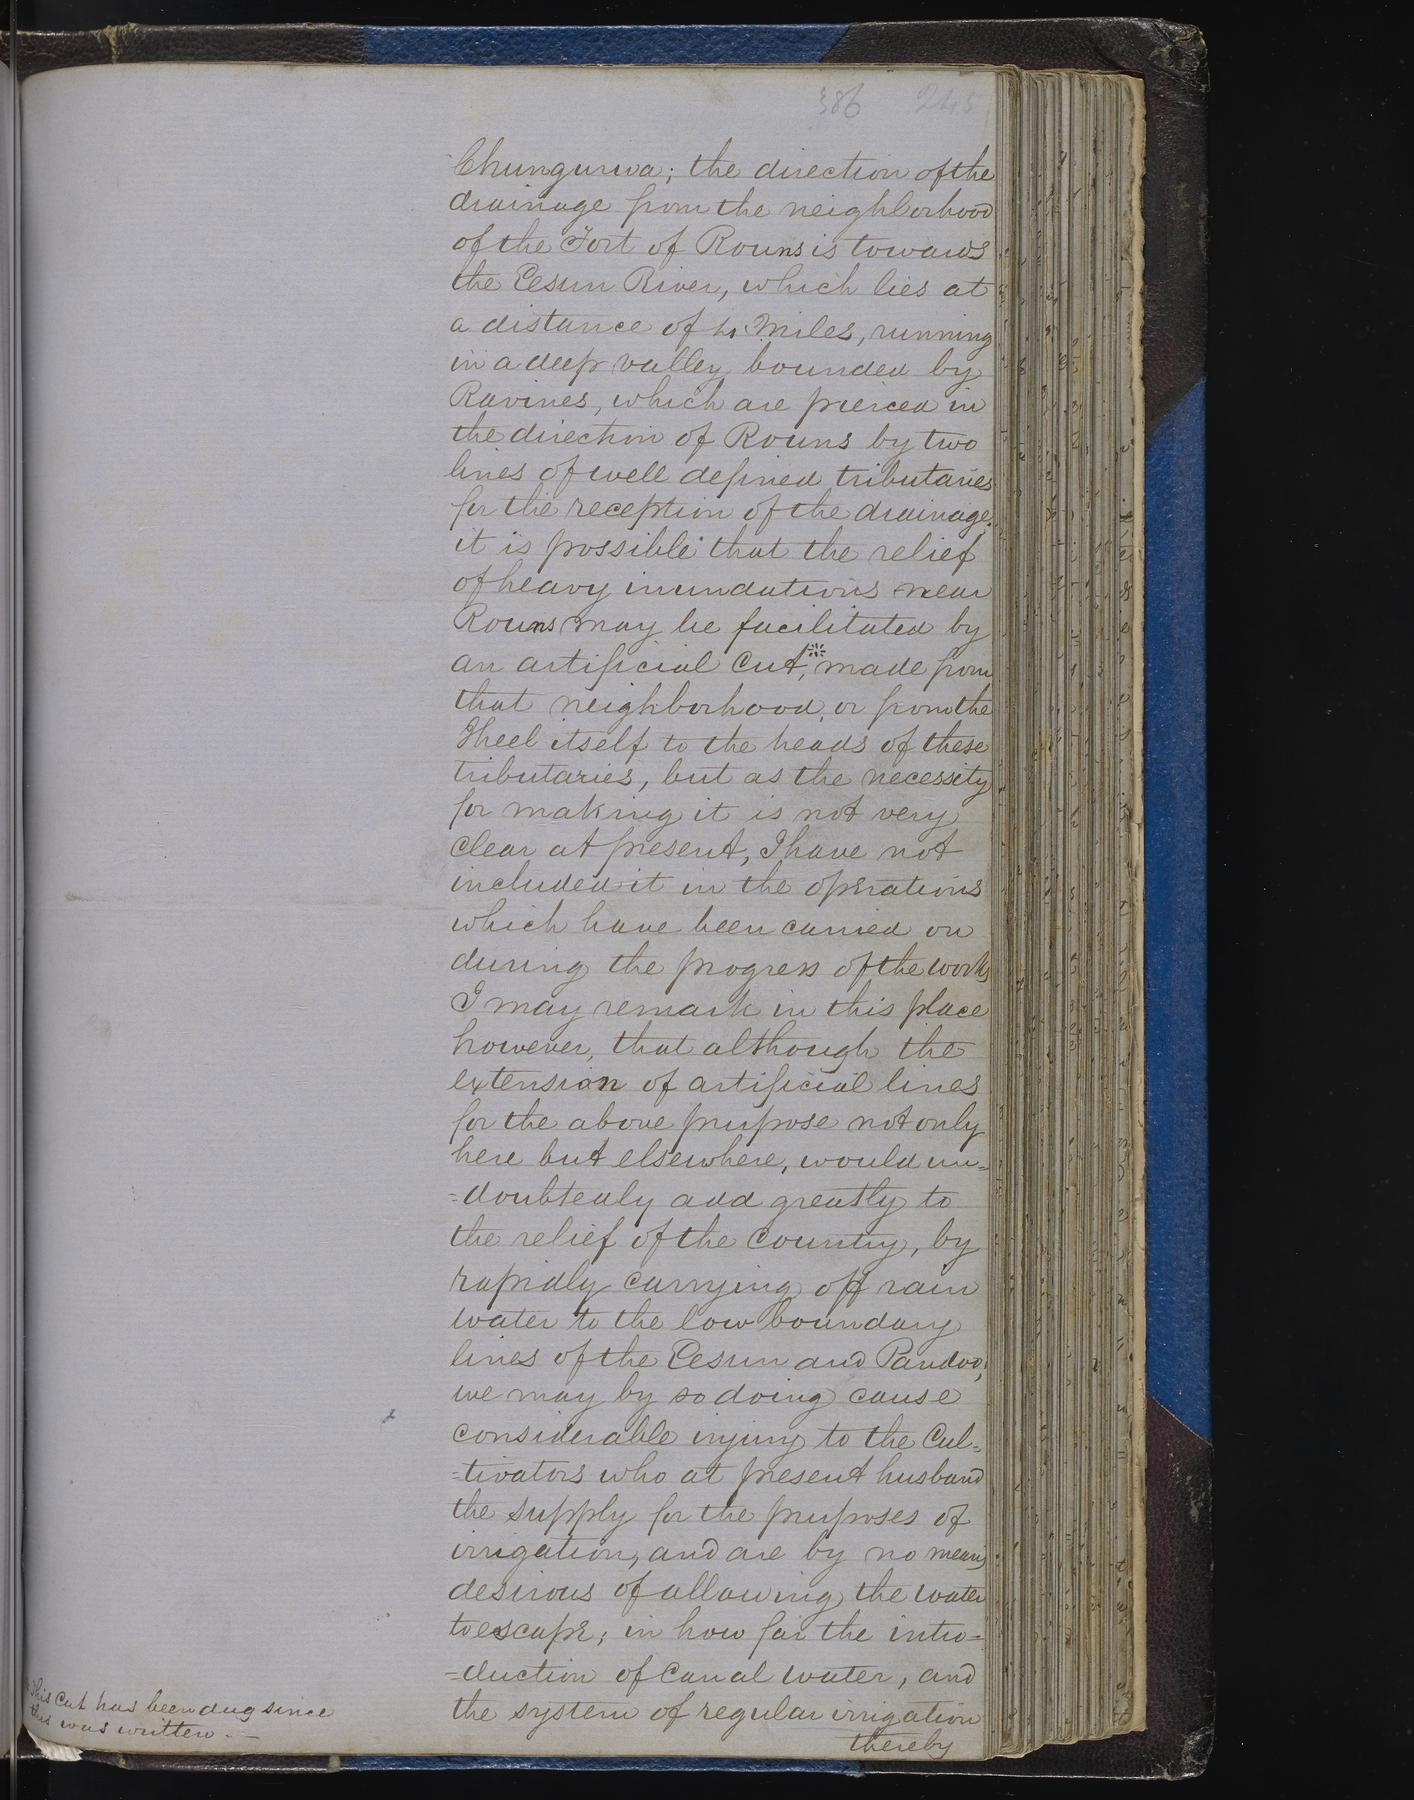 386 245
Chungurwa; the direction of the
drainage from the neighborhood
of the Fort of Rouns is towards
the Eesun River, which lies at
a distance of 4 Miles, running
in a deep valley bounded by
Ravines, which are pierced in
the direction of Rouns by two
lines of well defined tributaries
for the reception of the drainage.
it is possible that the relief
of heavy inundations near
Rouns may be facilitated by
an artificial Cut,* made from
that neighborhood, or from the
Jheel itself to the heads of these
tributaries, but as the necessity
for making it is not very
clear at present, I have not
included it in the operations
which have been carried on
during the progress of the works
I may remark in this place
however, that although the
extension of artificial lines
for the above purpose not only
here but elsewhere, would un=
=doubtedly add greatly to
the relief of the Country, by
rapidly carrying off rain
water to the low boundary
lines of the Eesun and Pandoo,
we may by so doing cause
considerable injury to the Cul=
=tivators who at present husband
the supply for the purposes of
irrigation, and are by no means
desirous of allowing the water
to escape; in how far the intro=
=duction of Canal water, and
the system of regular irrigation
thereby
* This Cut has been dug since
this was written. —